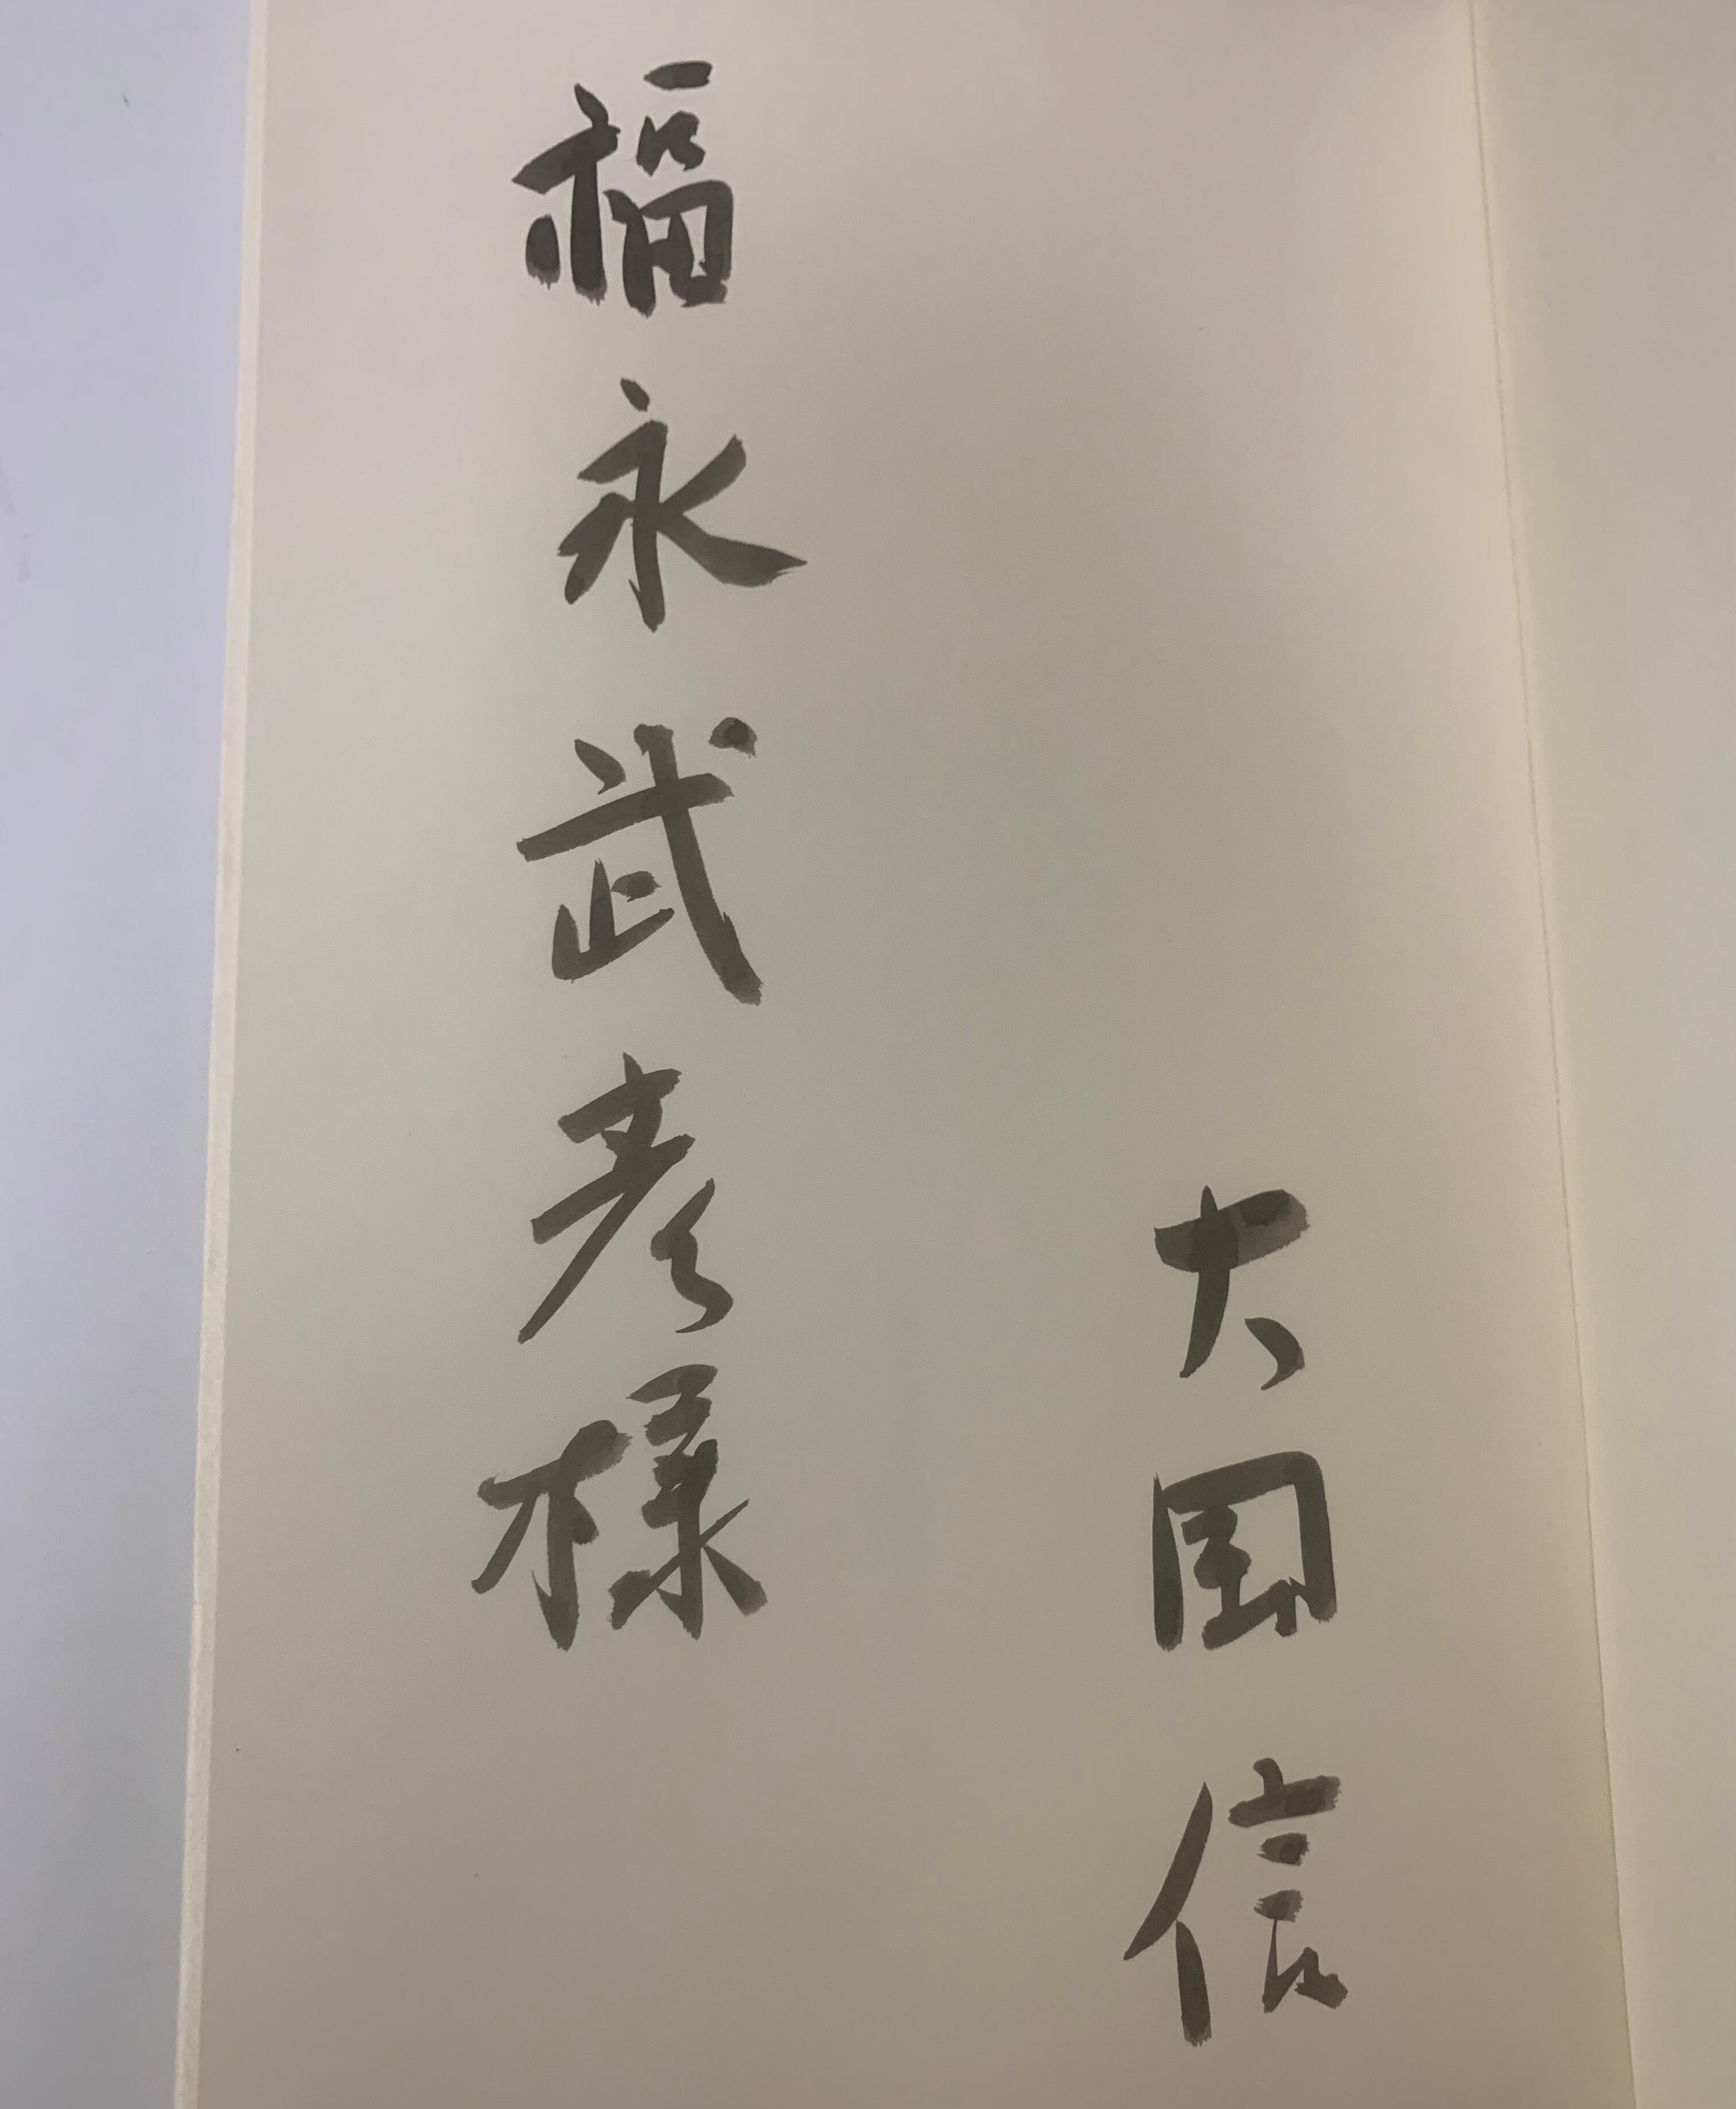 大岡信
福永武彦様